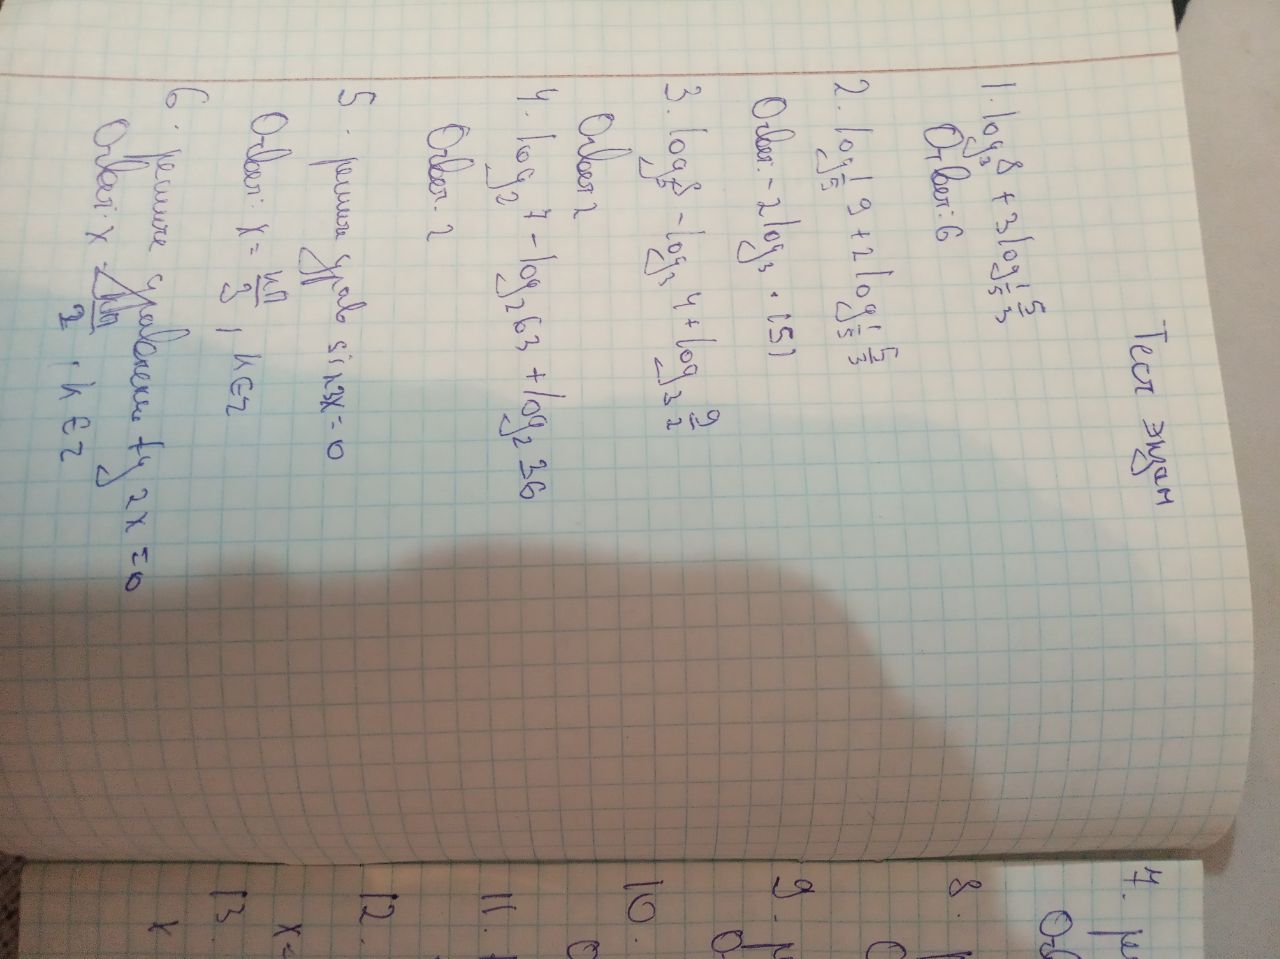 Тест экзам
1. log₃ 8 + 3 log 1/5 5/3
Ответ: 6
2. log 1/5 9 + 2 log 1/5 5/3
Ответ. - 2 log₃ · (5)
3. log - log₃ 4 + log₃ 9/2
Ответ 2
4. log₂ 7 - log₂ 63 + log₂ 36
Ответ. 2
5. решите урав sin3x=0
Ответ: x = кП/3, k∈z
6. решите уравнение tg 2x = 0
Ответ. x = кП/2 . k∈z
7.
8.
9.
10.
11.
12.
x=
13.
x